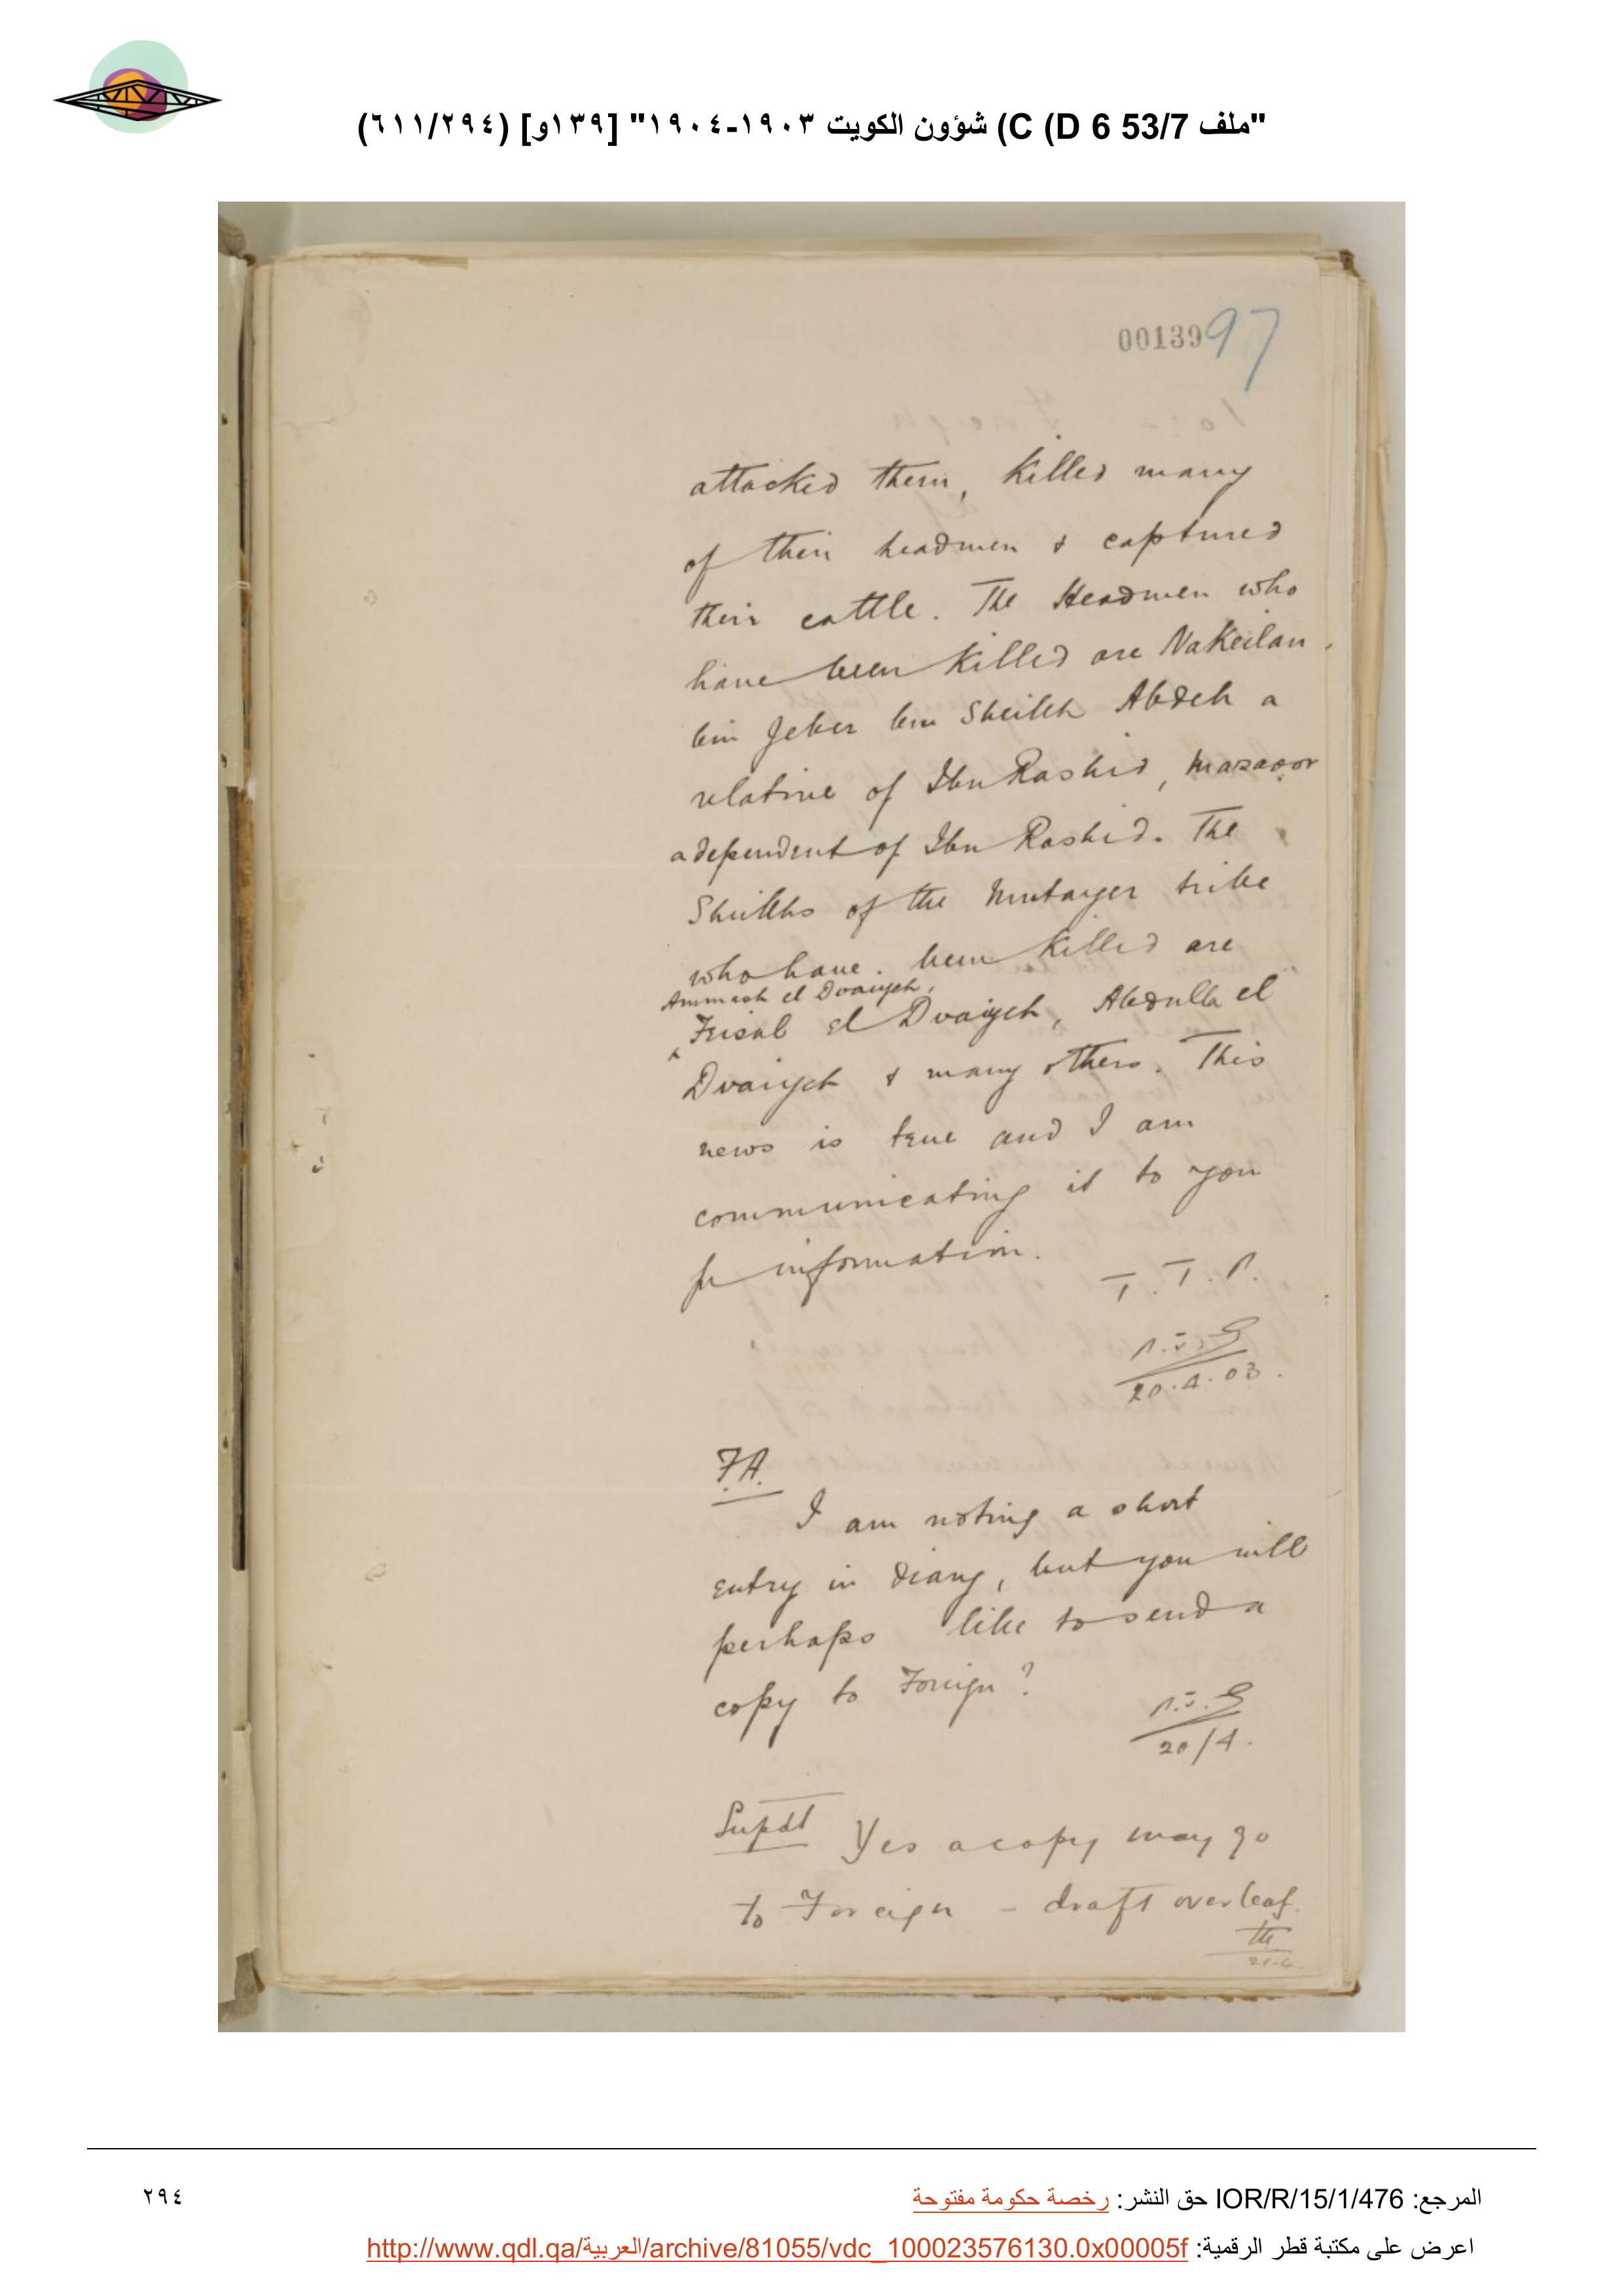 "ملف 53/7 C (D 6) شؤون الكويت ١٩٠٣-١٩٠٤" [١٣٩و] (٦١١/٢٩٤)
00139 97
attacked them, killed many
of their headmen & captured
their cattle. The Headmen who
have been killed are Nakeilan,
bin Jeber bin Sheikh Abdeh a
relative of Ibn Rashid, Mazaoor
a dependent of Ibn Rashid. The
Sheikhs of the Mutayer tribe
who have been killed are
Ammash el Dvaiyeh,
Feisal el Dvaiyeh, Abdulla el
Dvaiyeh & many others. This
news is true and I am
communicating it to you
for information.
T. T. P.
20.4.03.
F.A.
I am noting a short
entry in diary, but you will
perhaps like to send a
copy to Foreign?
20/4.
Supdt Yes a copy may go
to Foreign - draft overleaf.
المرجع: IOR/R/15/1/476 حق النشر: رخصة حكومة مفتوحة
٢٩٤
اعرض على مكتبة قطر الرقمية: http://www.qdl.qa/العربية/archive/81055/vdc_100023576130.0x00005f